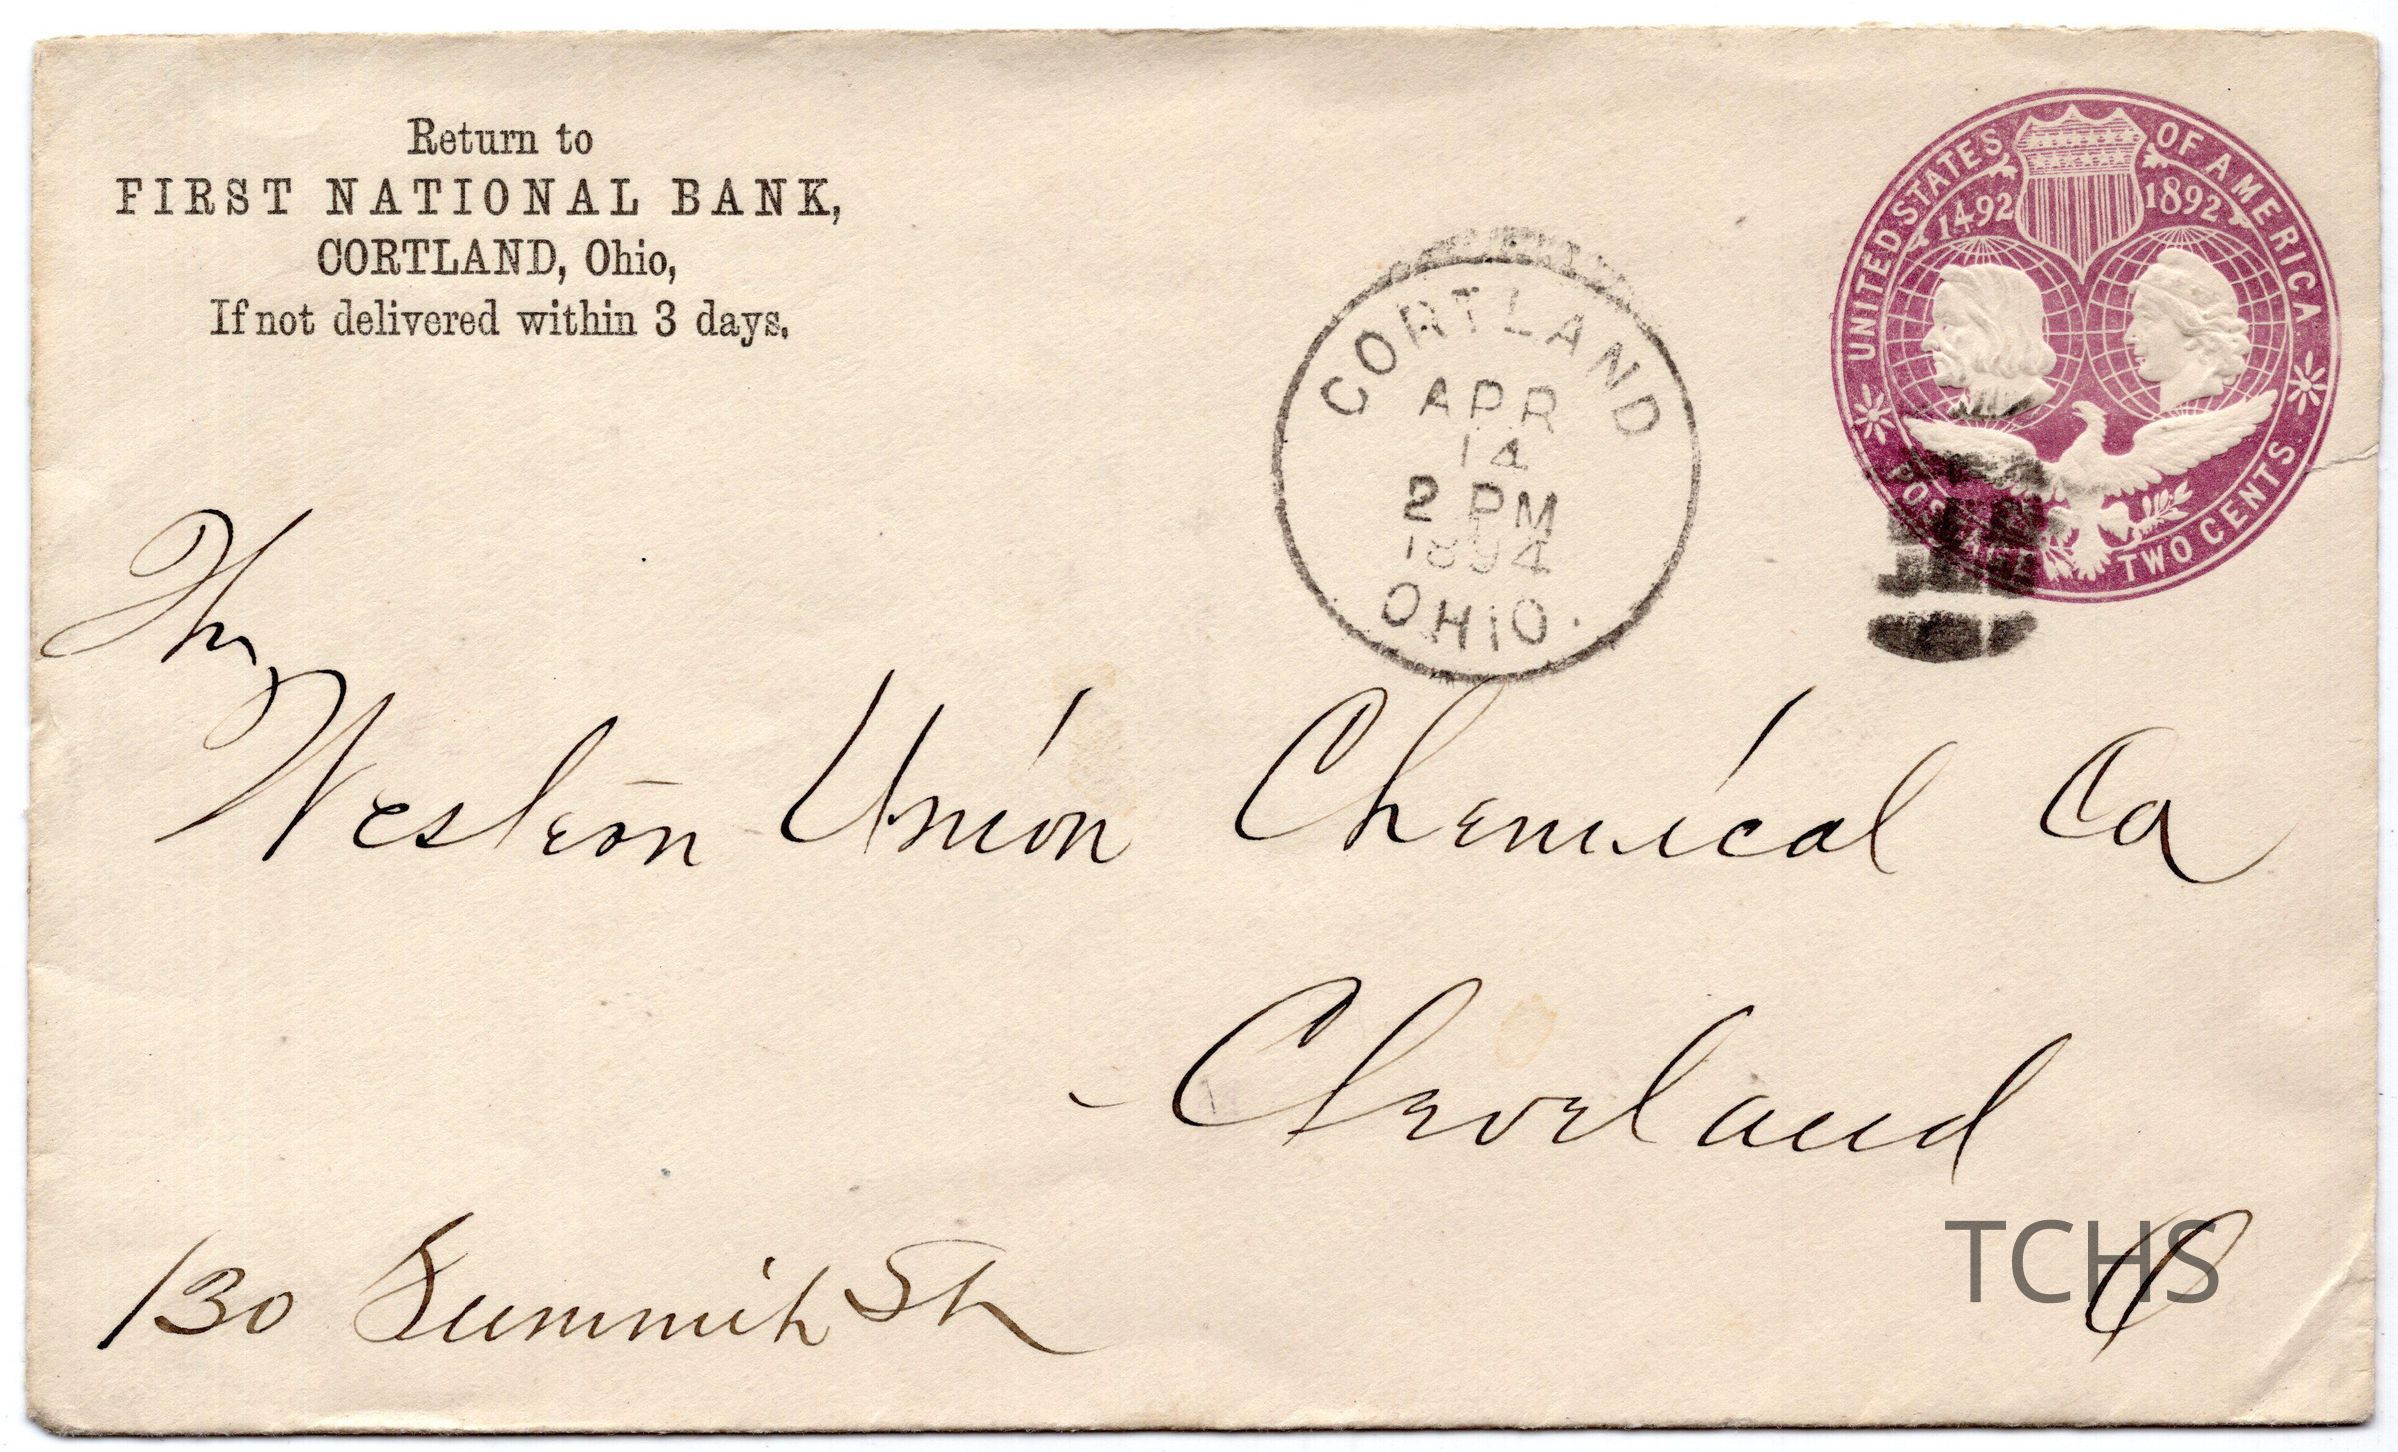 Return to
FIRST NATIONAL BANK,
CORTLAND, Ohio,
If not delivered within 3 days.
UNITED STATES OF AMERICA
1492 1892
POSTAGE TWO CENTS
CORTLAND
APR
14
2 PM
1894
OHIO.
The
Western Union Chemical Co
Cleveland
O
130 Summit St
TCHS